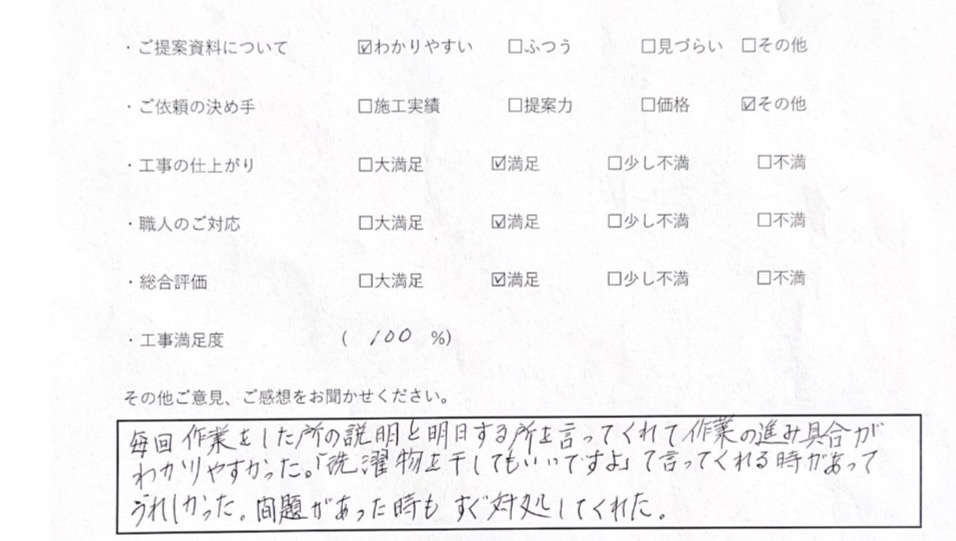 ・ご提案資料について ☑わかりやすい □ふつう □見づらい □その他
・ご依頼の決め手 □施工実績 □提案力 □価格 ☑その他
・工事の仕上がり □大満足 ☑満足 □少し不満 □不満
・職人のご対応 □大満足 ☑満足 □少し不満 □不満
・総合評価 □大満足 ☑満足 □少し不満 □不満
・工事満足度 ( 100 %)
その他ご意見、ご感想をお聞かせください。
毎回作業をした所の説明と明日する所を言ってくれて作業の進み具合が
わかりやすかった。「洗濯物を干してもいいですよ」て言ってくれる時があって
うれしかった。問題があった時もすぐ対処してくれた。